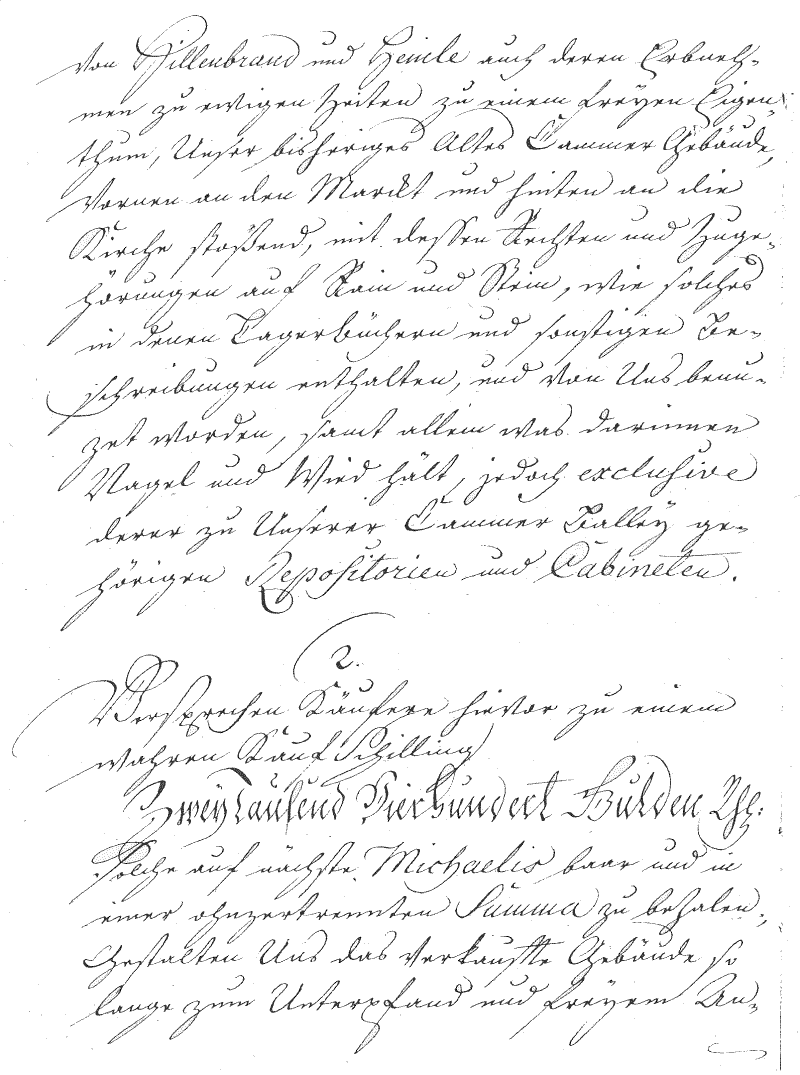 von Hillenbrand und Heinle auch deren Erbneh-
men zu ewigen Zeiten zu einem freyen Eigen-
thum, Unser bisheriges Altes Cammer Gebäude,
Vornen an den Marckt und hinten an die
Kirche stoßend, mit dessen Rechten und Zuge-
hörungen auf Rain und Stein, wie solches
in denen Lagerbüchern und sonstigen Be-
schreibungen enthalten, und von Uns benu-
zet worden, samt allem was darinnen
Nagel und Wied hält, jedoch exclusive
derer zu Unserer Cammer Balley ge-
hörigen Repositorien und Cabineten.
2.
Versprechen Käufere hievor zu einem
wahren Kauf Schilling
Zwey Tausend Vierhundert Gulden
solche auf nächste Michaelis baar und in
einer ohnzertrennten Summa zu bezalen,
Gestalten Uns das verkauffte Gebäude so
lange zum Unterpfand und freyem An-